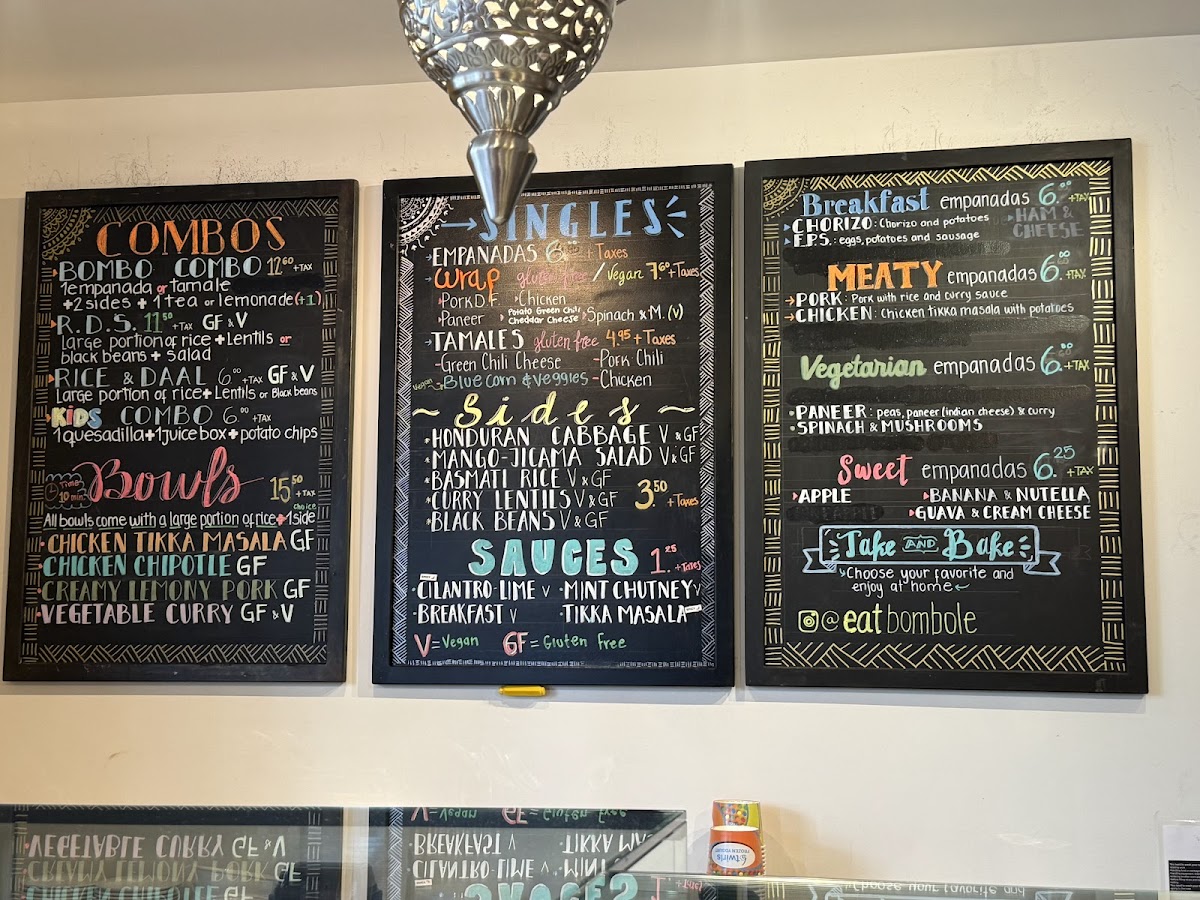 COMBOS
BOMBO COMBO 12⁶⁰ +TAX
1 empanada or tamale
+2 sides +1 tea or lemonade (+1)
R.D.S. 11⁵⁰ +TAX GF & V
large portion of rice + Lentils or
black beans + salad
RICE & DAAL 6⁰⁰ +TAX GF & V
Large portion of rice + Lentils or Black beans
KIDS COMBO 6⁰⁰ +TAX
1 quesadilla + 1 juice box + potato chips
Time 10 min.
Bowls 15⁵⁰ +TAX
choice
All bowls come with a large portion of rice + 1 side
CHICKEN TIKKA MASALA GF
CHICKEN CHIPOTLE GF
CREAMY LEMONY PORK GF
VEGETABLE CURRY GF & V
SINGLES
EMPANADAS 6. + Taxes
wrap gluten free / vegan 7⁶⁰ + Taxes
Pork D.F. Chicken
Paneer Potato Green Chili Cheddar Cheese Spinach & M. (V)
TAMALES gluten free 4.95 + Taxes
-Green Chili Cheese -Pork Chili
Vegan Blue corn & veggies -Chicken
~ Sides ~
HONDURAN CABBAGE V & GF
MANGO-JICAMA SALAD V & GF
BASMATI RICE V & GF
CURRY LENTILS V & GF 3.⁵⁰ + Taxes
BLACK BEANS V & GF
SAUCES 1.²⁵ + Taxes
CILANTRO-LIME V · MINT CHUTNEY V
BREAKFAST V · TIKKA MASALA
V = Vegan GF = Gluten Free
Breakfast empanadas 6.⁰⁰ +TAX
CHORIZO: Chorizo and potatoes
HAM & CHEESE
E.P.S.: eggs, potatoes and sausage
MEATY empanadas 6.⁰⁰ +TAX
PORK: Pork with rice and curry sauce
CHICKEN: Chicken tikka masala with potatoes
Vegetarian empanadas 6.⁰⁰ +TAX
PANEER: peas, paneer (indian cheese) & curry
SPINACH & MUSHROOMS
Sweet empanadas 6.²⁵ +TAX
APPLE BANANA & NUTELLA
GUAVA & CREAM CHEESE
Take AND Bake
Choose your favorite and
enjoy at home
@eatbombole